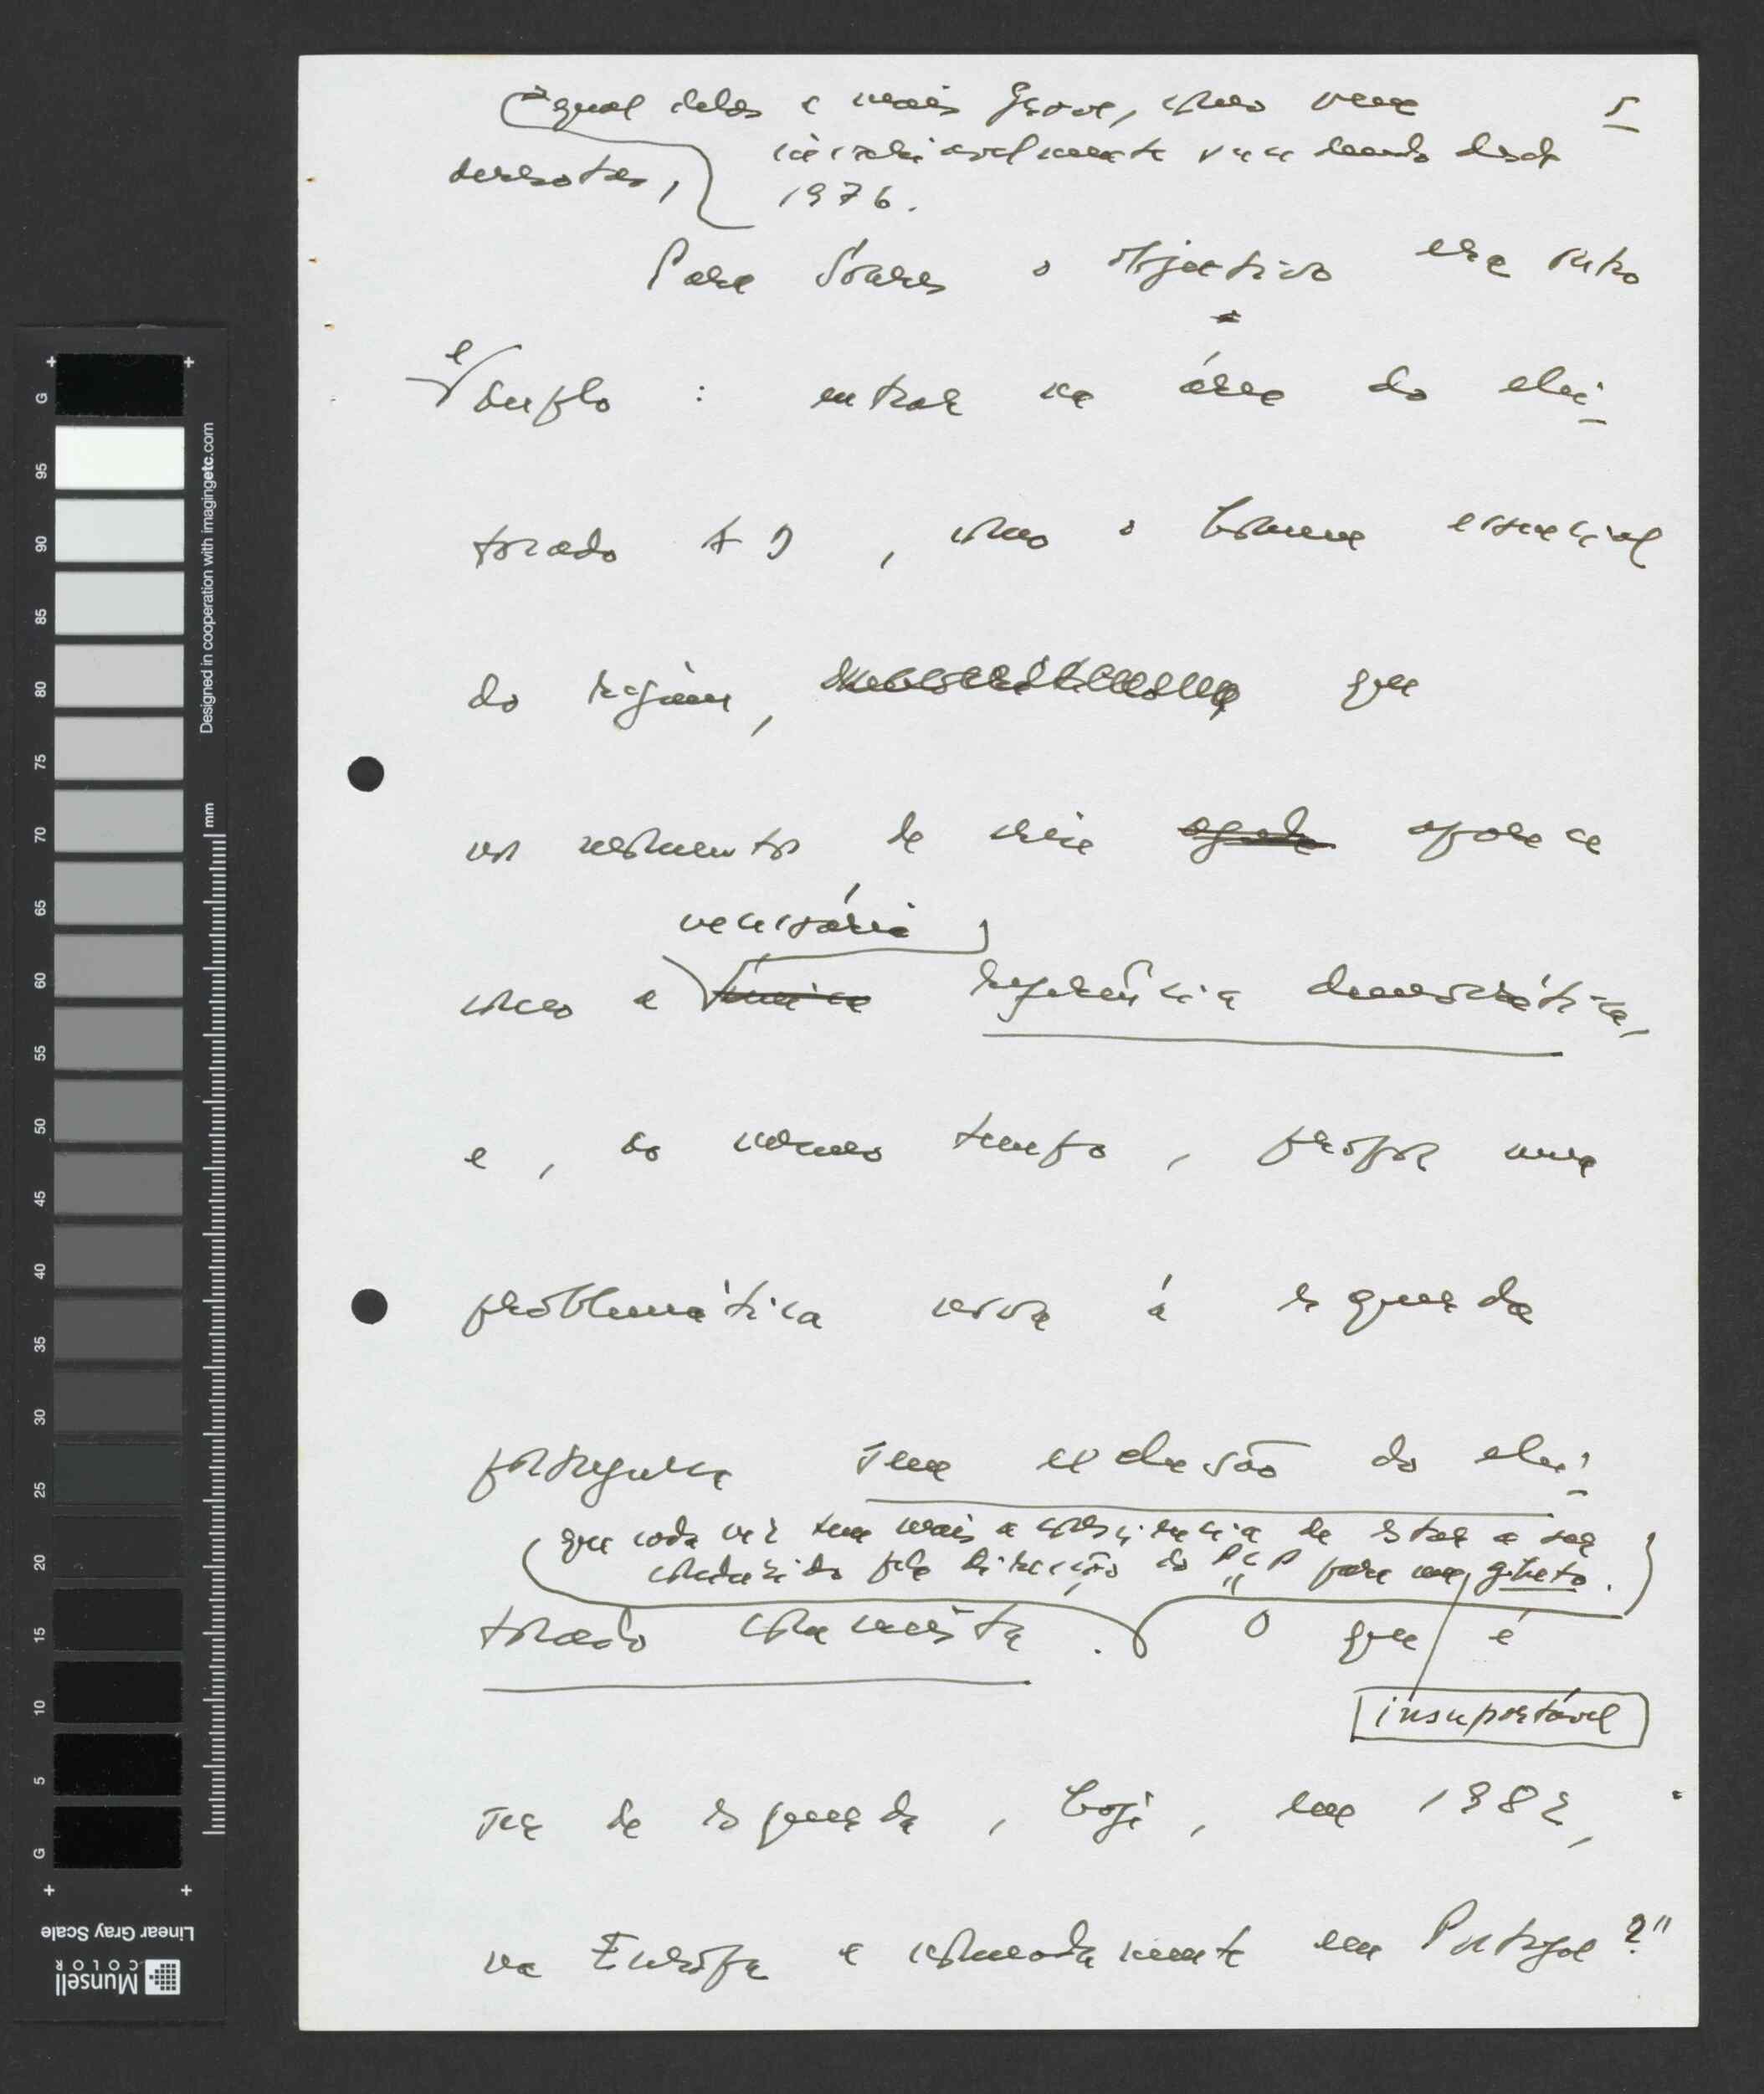 5
qual delas a mais grave, como vem
invariavelmente sucedendo desde
derrotas, 1976.
Para Soares o objectivo era outro
e duplo : entrar na área do elei-
torado AD, como o homem essencial
do regime, que
nos momentos de crise aparece
como a necessária referência democrática,
e, ao mesmo tempo, propor uma
problemática nova à esquerda
portuguesa sem exclusão do elei-
que cada vez tem mais a consciência de estar a ser
conduzido pela direcção do PCP para um ghetto.
torado comunista. O que é
insuportável
ser de esquerda, hoje, em 1982,
na Europa e nomeadamente em Portugal?"
G 95 90 85 80 75 70 65 60 55 50 45 40 35 30 25 20 15 10 5 G
mm
Designed in cooperation with imagingetc.com
Linear Gray Scale
Munsell
COLOR